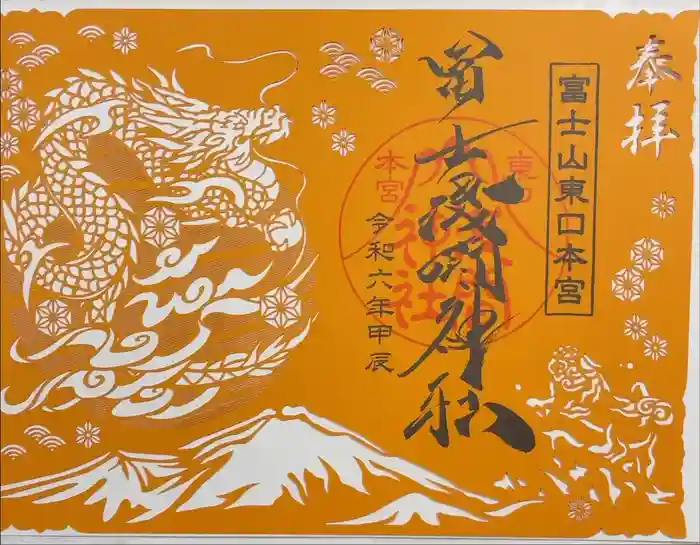 奉拝
富士山東口本宮
冨士浅間神社
東口
本宮
令和六年甲辰